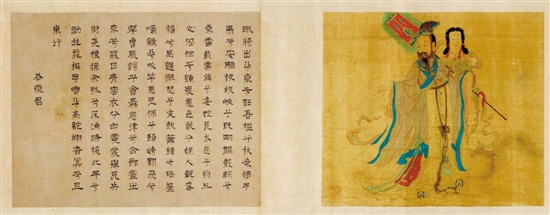 暾將出兮東方照吾檻兮扶桑撫余
馬兮安驅夜皎皎兮既明駕龍輈兮
乘雷載雲旗兮委蛇長太息兮將上
心低佪兮顧懷羌色聲兮娛人觀者
憺兮忘歸緪瑟兮交鼓簫鍾兮瑤簴
鳴篪兮吹竽思靈保兮賢姱翾飛兮
翠曾展詩兮會舞應律兮合節靈之
來兮蔽日青雲衣兮白霓裳舉長矢
兮射天狼操余弧兮反淪降援北斗兮
酌桂漿撰余轡兮高駝翔杳冥冥兮以
東行
右東君